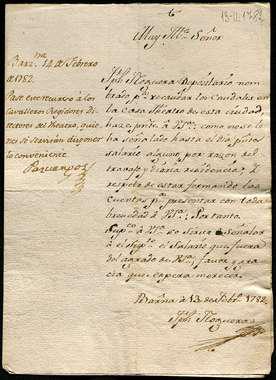 13-II-1782
Muy Ille. Señor
Barna. 14 de Febrero
de 1782.
Pase este recurso á los
Cavalleros Regidores Di-
rectores del Theatro, quie-
nes se servirán disponer
lo conveniente.
Jph. Noguera Depositario nom-
brado pa. recaudar los caudales en
la Casa Theatro de esta ciudad,
haze pnte. á V.S. como no se le
ha señalado hasta el dia, justo
salario alguno por razon del
trabajo y diaria residencia; y
respeto de estar formando las
cuentas pa. presentar con toda
brevedad á V.S.; Por tanto
Supca. á V.S. se sirva señalar
á el Supte. el salario que fuera
del agrado de V.S.; favor y gra-
cia que espera merecer.
Barna. á 13 de Febro. 1782
Jph. Noguera